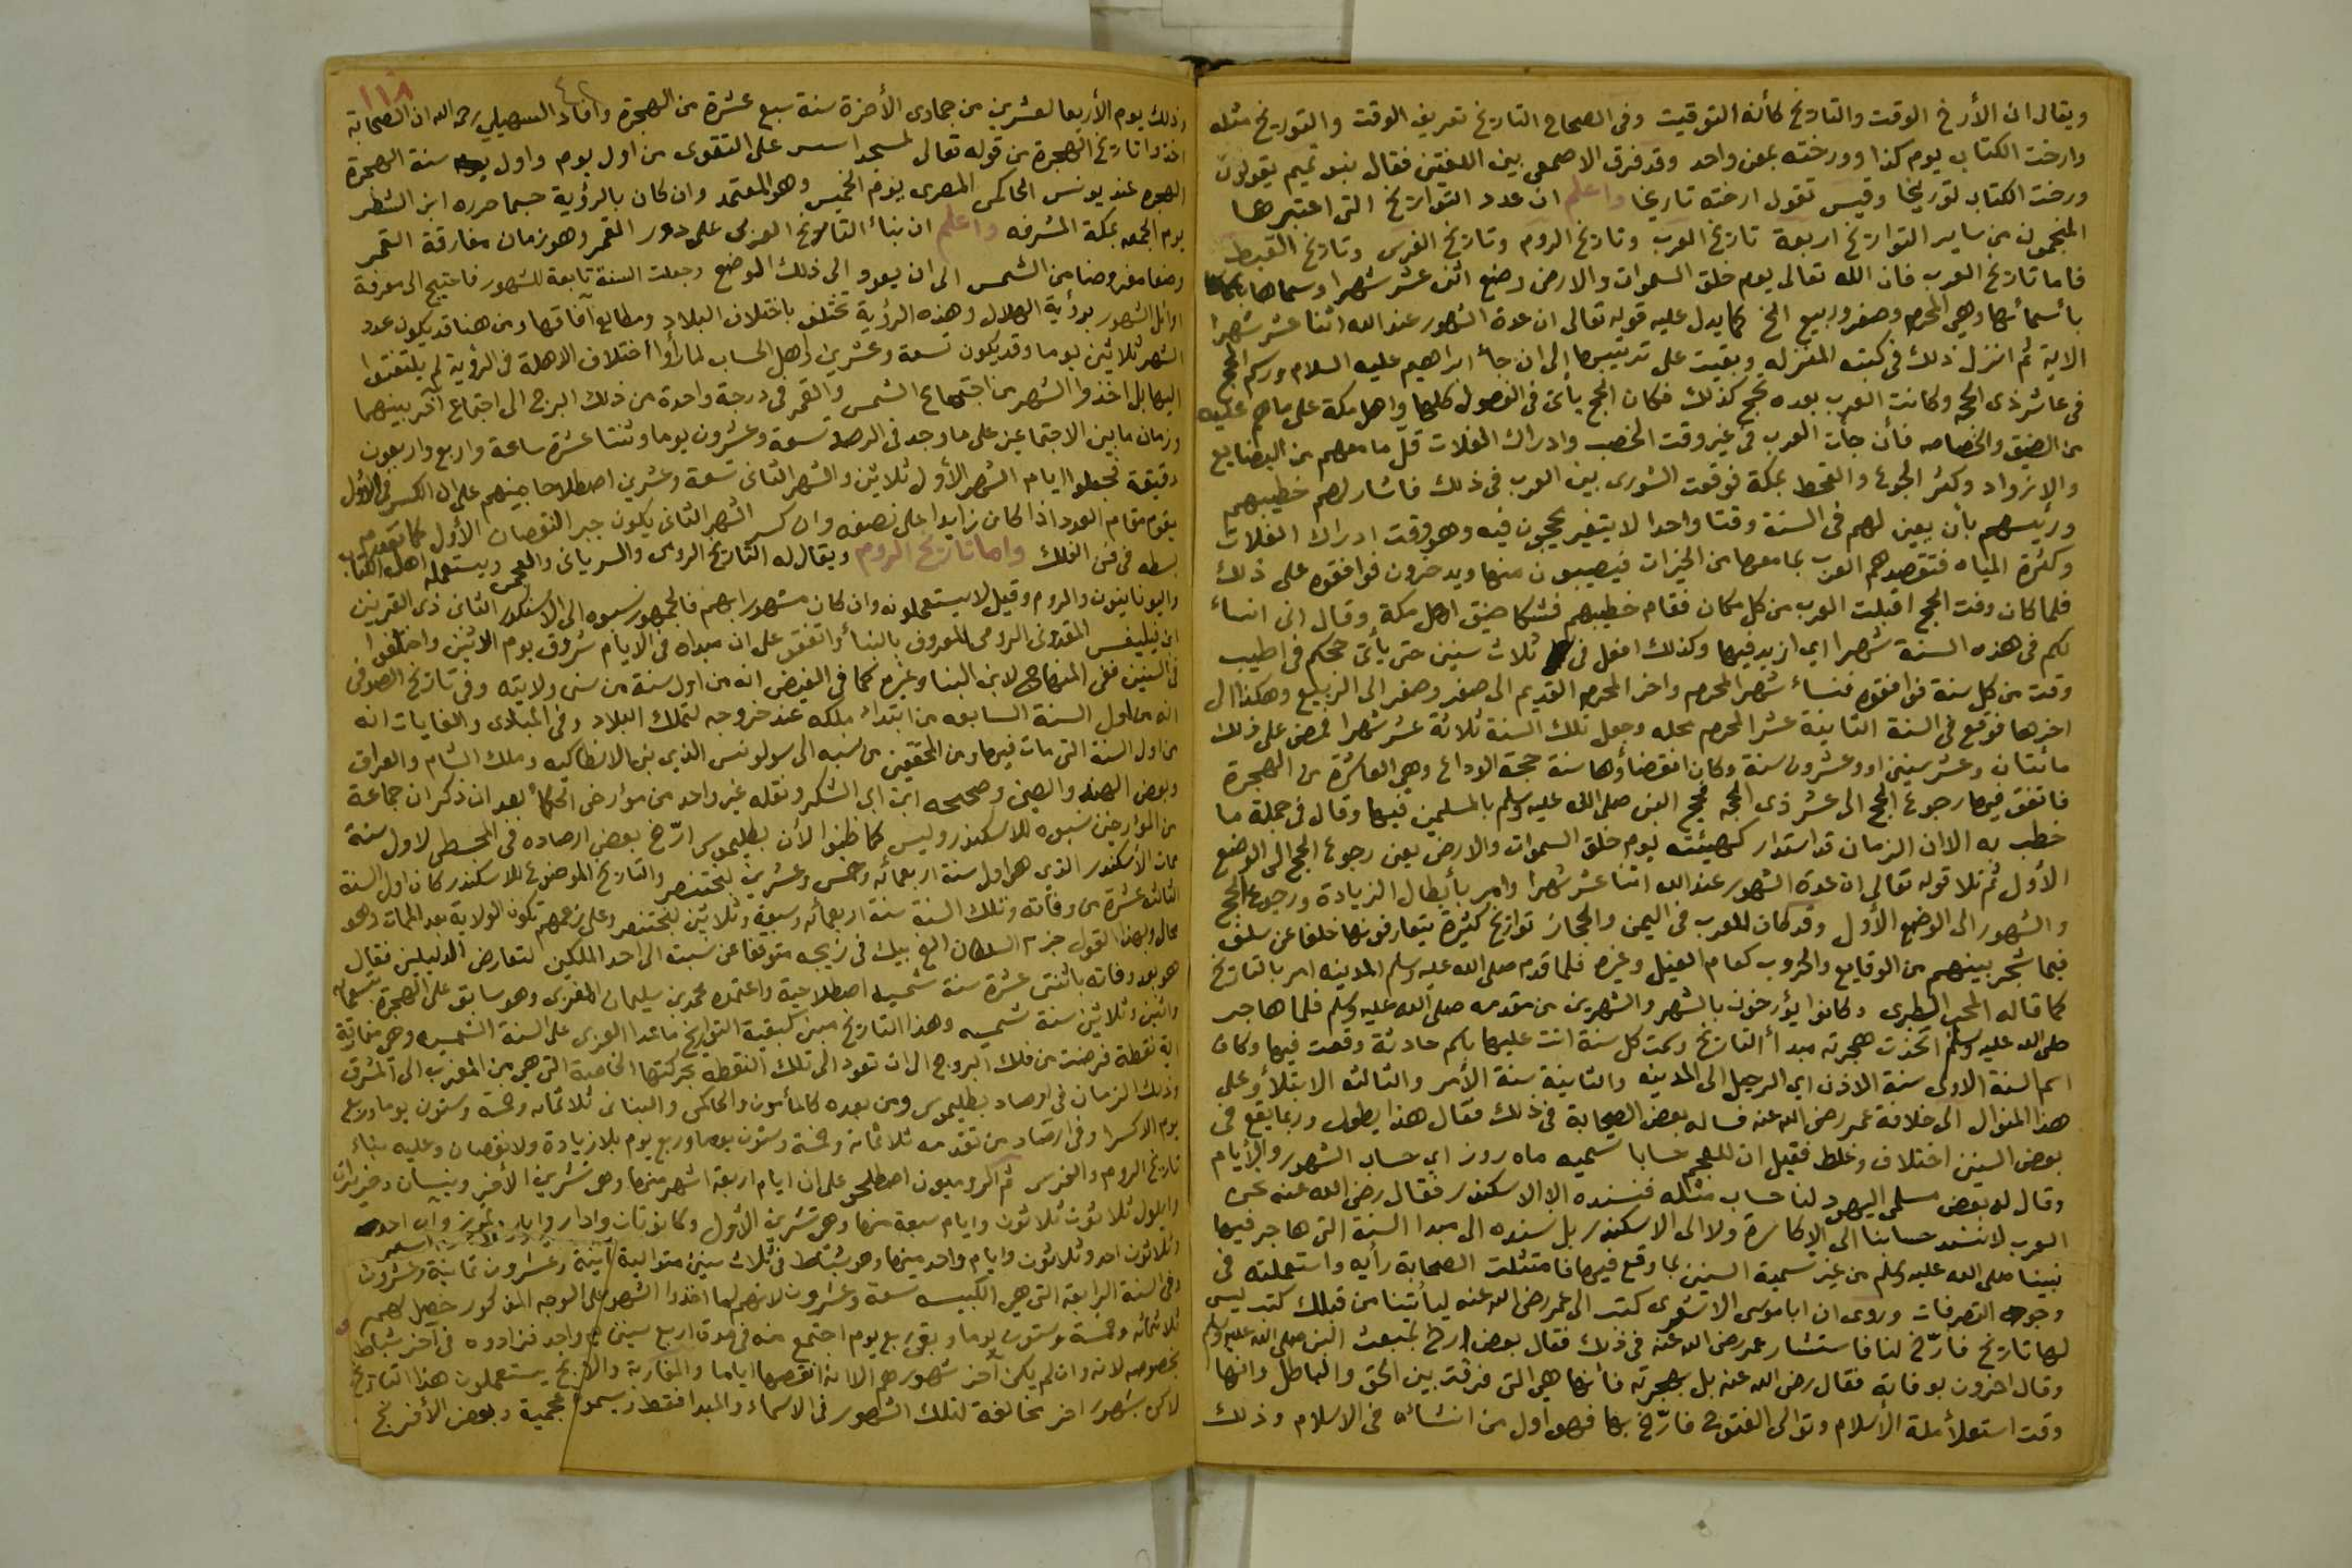 ويقال ان الأرخ الوقت والتاريخ كأنه التوقيت وفى الصحاح التاريخ تعريف الوقت والتوريخ مثله
وارخت الكتاب يوم كذا وورخته بمعنى واحد وقد فرق الاصمعى بين اللغتين فقال بنو تميم يقولون
ورخت الكتاب توريخا وقيس تقول ارخته تاريخا واعلم ان عدد التواريخ التى اعتبرها
المنجمون من ساير التواريخ اربعة تاريخ العرب وتاريخ الروم وتاريخ الفرس وتاريخ القبط
فاما تاريخ العرب فان الله تعالى يوم خلق السموات والارض وضع اثنى عشر شهرا وسماها
بأسمائها وهي المحرم وصفر وربيع الخ كما يدل عليه قوله تعالى ان عدة الشهور عند الله اثنا عشر شهرا
الاية ثم انزل ذلك فى كتبه المنزله وبقيت على ترتيبها إلى ان جأ ابراهيم عليه السلام
فى عاشر ذى الحجه وكانت العرب بعده تحج كذلك فكان الحج يأتى فى الفصول كلها واهل مكة على ما هم عليه
من الضيق والخصاصه فأن جأت العرب فى غير وقت الخصب وادراك الغلات قل ما معهم من البضايع
والازواد وكثر الجوع والقحط بمكة فوقعت الشورى بين العرب فى ذلك فاشار لهم خطيبهم
ورئيسهم بأن يعين لهم فى السنة وقتا واحدا لا يتغير يحجون فيه وهو وقت ادراك الغلات
وكثرة المياه فتقصدهم العرب بما معها من الخيرات فيصيبون منها ويدخرون فوافقوه على ذلك
فلما كان وقت الحج اقبلت العرب من كل مكان فقام خطيبهم فشكا ضيق اهل مكة وقال انى انسأ
لكم فى هذه السنة شهرا اي ازيد فيها وكذلك افعل فى ثلاث سنين حتى يأتى حجكم فى اطيب
وقت من كل سنة فوافقوه فنسأ شهر المحرم واخر المحرم القديم الى صفر وصفر الى الربيع وهكذا الى
اخرها فوقع فى السنة الثانية عشر المحرم محله وجعل تلك السنة ثلاثة عشر شهرا فمضى على ذلك
مائتان وعشر سنين او وعشرون سنة وكان انقضأوها سنة حجة الوداع وهي العاشرة من الهجرة
فاتفق فيها رجوع الحج الى عشر ذى الحجه فحج النبى صلى الله عليه وسلم بالمسلمين فيها وقال فى جملة ما
خطب به الا ان الزمان قد استدار كهيئته يوم خلق السموات والارض يعنى رجوع الحج الى الوضع
الأول ثم تلا قوله تعالى ان عدة الشهور عند الله اثنا عشر شهرا وامر بأبطال الزيادة ورجوع الحج
والشهور الى الوضع الأول وقد كان للعرب فى اليمن والحجاز تواريخ كثيرة يتعارفونها خلفا عن سلف
فيما شجر بينهم من الوقايع والحروب كعام الفيل وغيره فلما قدم صلى الله عليه وسلم المدينه امر بالتاريخ
كما قاله المحب الطبرى وكانوا يؤرخون بالشهر والشهرين من مقدمه صلى الله عليه وسلم فلما هاجر
صلى الله عليه وسلم اتخذت هجرته مبدأ التاريخ وسمت كل سنة اتت عليها باسم حادثة وقعت فيها وكان
اسم السنة الاولى سنة الاذن اي الرحيل الى المدينه والثانية سنة الأمر والثالثه الابتلأ وعلى
هذا المنوال الى خلافة عمر رضى الله عنه فساله بعض الصحابة فى ذلك فقال هذا يطول وربما يقع فى
بعض السنين اختلاف وغلط فقيل ان للعجم حسابا تسميه ماه روز اى حساب الشهور والأيام
وقال له بعض مسلمى اليهود لنا حساب مثله فنسنده الا الاسكندر فقال رضى الله عنه نحن
العرب لا نسند حسابنا الى الاكاسرة ولا الى الاسكندر بل نسنده الى مبدا السنة التى هاجر فيها
نبينا صلى الله عليه وسلم من غير تسمية السنين بما وقع فيها فامتثلت الصحابة رأيه واستعملته فى
وجوه التصرفات وروى ان ابا موسى الاشعرى كتب الى عمر رضى الله عنه ليأتينا من قبلك كتب ليس
لها تاريخ فأرّخ لنا فاستشار عمر رضى الله عنه فى ذلك فقال بعض ارخ لمبعث النبى صلى الله عليه وسلم
وقال اخرون بوفاته فقال رضى الله عنه بل بهجرته فأنها هي التى فرقت بين الحق والباطل وانها
وقت استعلأ ملة الأسلام وتوالى الفتوح فأرّخ بها فهو اول من انشأه فى الاسلام وذلك
١١٨
وذلك يوم الأربعا لعشرين من جمادى الأخرة سنة سبع عشرة من الهجرة وافاد السهيلى رحمه الله ان الصحابة
اخذوا تاريخ الهجرة من قوله تعالى لمسجد اسس على التقوى من اول يوم واول سنة الهجرة
الهجره عند يونس الحاكمى المصرى يوم الخميس وهو المعتمد وان كان بالرؤية حسبما حرره ابن الشطر
يوم الجمعه بمكة المشرفه واعلم ان بنأ التاريخ العربى على دور القمر وهو زمان مفارقة القمر
وضعا مفروضا من الشمس الى ان يعود الى ذلك الموضع وجعلت السنة تابعة للشهور فاحتيج الى معرفة
اوائل الشهور برؤية الهلال وهذه الرؤية تختلف باختلاف البلاد ومطالع آفاقها ومن هنا قد يكون عدد
الشهر ثلاثين يوما وقد يكون تسعة وعشرين واهل الحساب لما رأوا اختلاف الاهلة فى الرؤية لم يلتفتوا
اليها بل اخذوا الشهر من اجتماع الشمس والقمر فى درجة واحدة من ذلك البرج الى اجتماع آخر بينهما
وزمان ما بين الاجتماعين على ما وجد فى الرصد تسعة وعشرون يوما وثنتا عشرة ساعة واربع واربعون
دقيقة فجعلوا ايام الشهر الأول ثلاثين والشهر الثانى تسعة وعشرين اصطلاحا بينهم على ان الكسر فى الأول
يقوم مقام العدد اذا كان زايدا على نصفه وان كسر الشهر الثانى يكون جبر النقصان الأول كما تقدم
بسطه فى فن الفلك واما تاريخ الروم ويقال له التاريخ الرومى والسريانى والعجمى ويستعمله اهل الكتاب
واليونانيون والروم وقيل لا يستعملونه وان كان مشهورا بهم فالجمهور نسبوه الى الاسكندر الثانى ذى القرنين
ابن فيليفس المقدونى الرومى المعروف بالبنأ واتفقوا على ان مبداه فى الايام شروق يوم الاثنين واختلفوا
فى السنين ففى المنهاج لابن البنا وغيره كما فى الفيض انه من اول سنة من سنى ولايته وفى تاريخ الصوفى
انه من اول السنة السابعه من ابتدأ ملكه عند خروجه لتملك البلاد وفى المبادى والغايات انه
من اول السنة التى مات فيها ومن المحققين من نسبه الى سولونس الذي بنى الانطاكيه وملك الشام والعراق
وبعض الهند والصين وصححه ابن ابى الشكر ونقله غير واحد من مؤارخى الحكمأ بعد ان ذكر ان جماعة
من المؤارخين نسبوه للاسكندر وليس كما ظنوا لأن بطليموس ارّخ بعض ارصاده فى المجسطى لاول سنة
ممات الأسكندر الذى هو اول سنة اربعمائه وخمس وعشرين لبختنصر والتاريخ الموضوع للاسكندر كان اول السنة
الثالثه عشرة من وفاته وتلك السنة سنة اربعمائه وسبعة وثلاثين لبختنصر وعلى زعمهم تكون الولاية بعد الممات وهو
محال وبهذا القول جزم السلطان الغ بيك فى زيجه متوقفا عن نسبته الى احد الملكين لتعارض الدليلين فقال
هو بعد وفاته باثنتى عشرة سنة شمسيه اصطلاحية واعتمده محمد بن سليمان المغربى وهو سابق على الهجرة بتسعمايه
واثنين وثلاثين سنة شمسيه وهذا التاريخ مبنى كبقية التواريخ ما عدا العربى على السنة الشمسيه وهى مفارقة
اية نقطة فرضت من فلك البروج الى ان تعود الى تلك النقطه بحركتها الخاصة التى هي من المغرب الى المشرق
وذلك الزمان فى ارصاد بطليموس ومن بعده كالمأمون والحاكمى والبتانى ثلاثمائه وخمسة وستون يوما وربع
يوم الا كسرا وفى ارصاد من تقدمه ثلاثمائة وخمسة وستون يوما وربع يوم بلا زيادة ولا نقصان وعليه بنأ
تاريخ الروم والفرس ثم الروميون اصطلحو على ان ايام اربعة اشهر منها وهى تشرين الأخير ونيسان وحزيران
وايلول ثلاثون ثلاثون وايام سبعة منها وهى تشرين الأول وكانونان وادار وايار وتموز وآب احد
وثلاثون احد وثلاثون وايام واحد منها وهو شباط فى ثلاث سنين متوالية ثمانية وعشرون
وفى السنة الرابعة التى هي الكبيسه تسعة وعشرون لانهم لما اخذوا الشهور على الوجه المذكور حصل لهم
ثلاثمائه وخمسة وستون يوما وبقى ربع يوم اجتمع منه فى مدة اربع سنين واحد فزادوه فى آخر شباط
بخصوصه لانه وان لم يكن آخر شهورهم الا انه انقصها اياما والمغاربة يستعملون هذا التاريخ
لاكن بشهور اخر مخالفة لتلك الشهور فى الاسماء والمبدا فقط وسموه عجمية وبعض الأفرنج